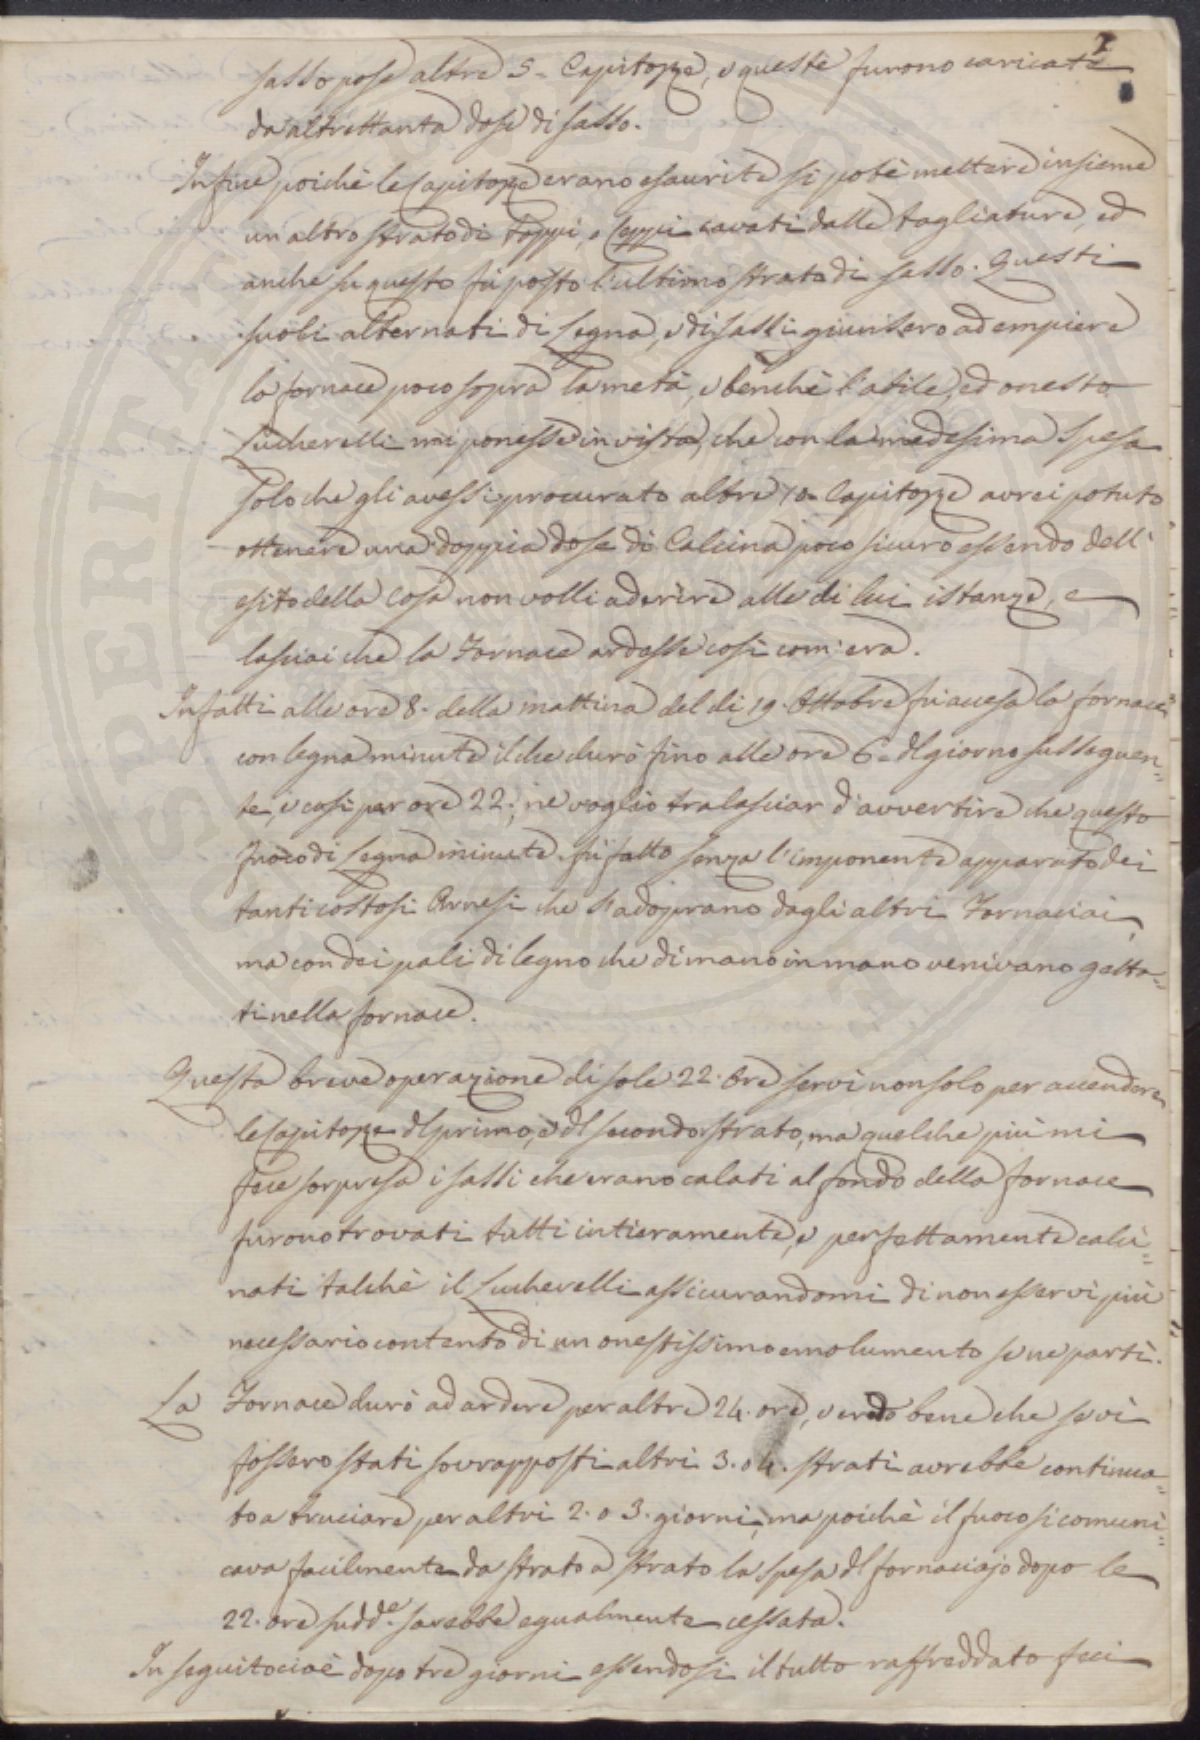 2
sasso pose altre 5. Capitozze, e queste furono caricate
da altrettanta dose di sasso.
Infine poichè le Capitozze erano esaurite si potè mettere insieme
un altro strato di toppi, o ceppi cavati dalle tagliature, ed
anche su questo fù posto l'ultimo strato di sasso. Questi
suoli alternati di Legna, e di sassi giunsero ad empiere
la fornace poco sopra la metà, e benchè l'abile, ed onesto
Lucherelli mi ponesse in vista, che con la medesima spesa
solo che gli avessi procurato altre 10 Capitozze avrei potuto
ottenere una doppia dose di Calcina poco sicuro essendo dell'
esito della cosa non volli aderire alle di lui istanze, e
lasciai che la Fornace ardesse così com'era.
Infatti alle ore 8. della mattina del dì 19. Ottobre fù accesa la fornace
con legna minute il che durò fino alle ore 6. dl giorno susseguen=
te, e così per ore 22.; nè voglio tralasciar d'avvertire che questo
fuoco di Legna minute fù fatto senza l'imponente apparato dei
tanti costosi Arnesi che s'adoprano dagli altri Fornaciai,
ma con dei pali di legno che di mano in mano venivano getta=
ti nella fornace.
Questa breve operazione di sole 22. Ore servì non solo per accendere
le Capitozze dl primo, e dl secondo strato, ma quelche più mi
fece sorpresa i sassi che erano calati al fondo della fornace
furono trovati tutti intieramente, e perfettamente calci=
nati talchè il Lucherelli assicurandomi di non esservi più
necessario contento di un onestissimo emolumento se ne partì.
La Fornace durò ad ardere per altre 24. ore, e credo bene che se vi
fossero stati sovrapposti altri 3. o 4. strati avrebbe continua=
to a bruciare per altri 2. o 3. giorni, ma poichè il fuoco si comuni=
cava facilmente da strato a strato la spesa dl fornaciajo dopo le
22. ore sudd.e sarebbe egualmente cessata.
In seguito cioè dopo tre giorni essendosi il tutto raffreddato feci